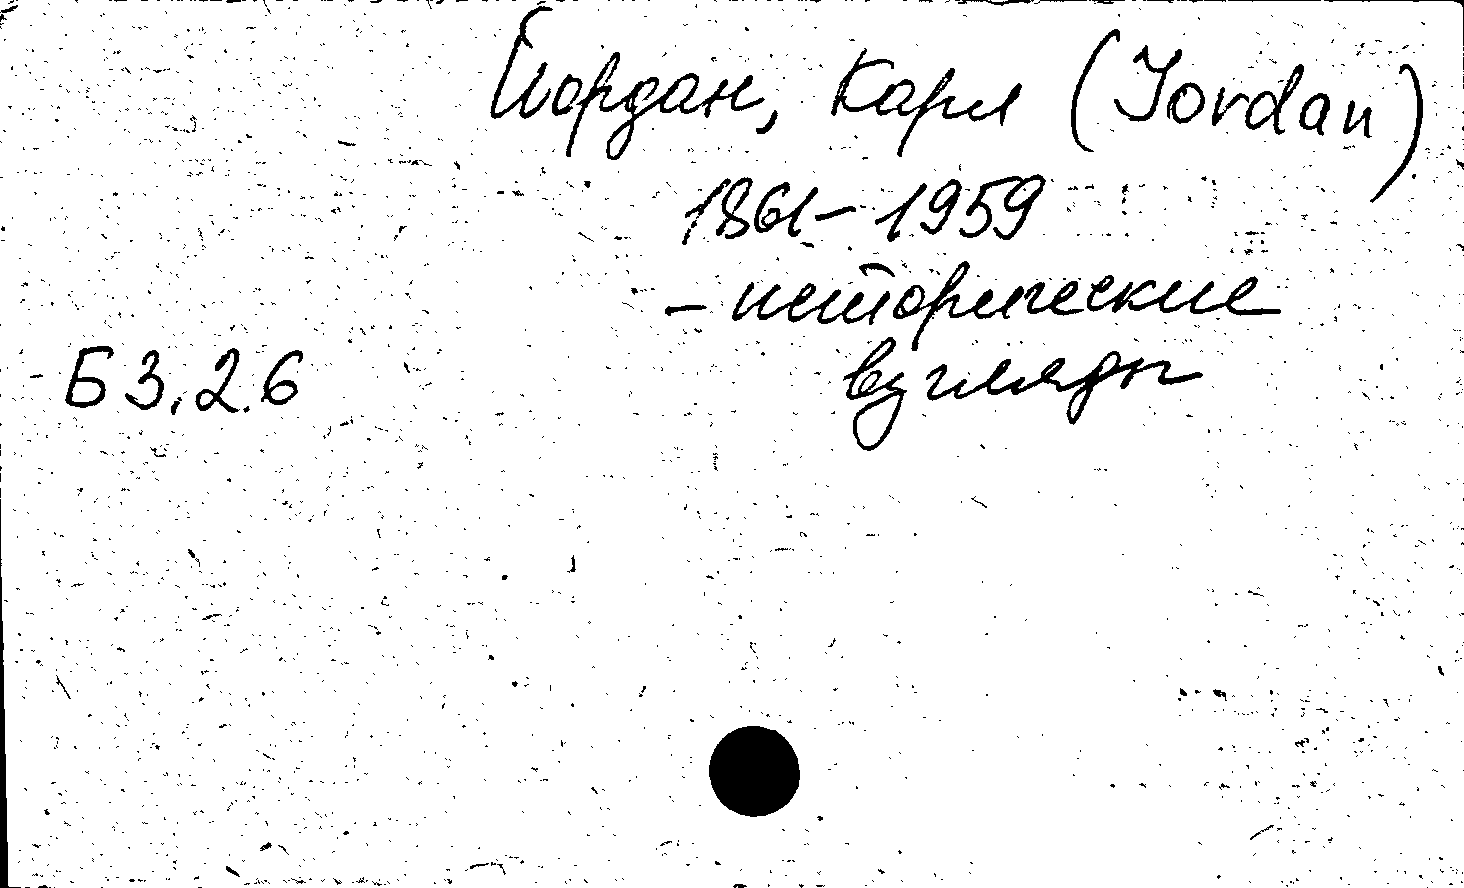 Йордан, Карл (Jordan)
1861 – 1959
– исторические
Б 3.2.6 взгляды